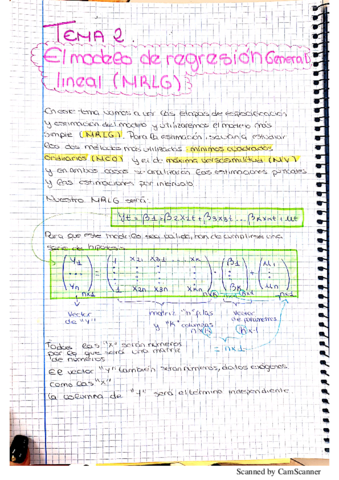 TEMA 2.
El modelo de regresión General
lineal (MRLG):
En este tema vamos a ver las etapas de especificación
y estimación del modelo y utilizaremos el modelo más
simple (MRLG). Para la estimación, se van a estudiar
los dos métodos más utilizados: mínimos cuadrados
ordinarios (MCO) y el de máxima verosimilitud (MV)
y en ambos casos se analizarán las estimaciones puntuales
y las estimaciones por intervalo.
Nuestro MRLG será:
Yt = β1 + β2X2t + β3X3t ... βkXkt + ut
Para que este modelo sea válido, han de cumplirse una
serie de hipótesis:
(Y1 ⋮ Yn) n×1 = (1 X21 X31 ... Xk1 ⋮ 1 X2n X3n Xkn) n×k · (β1 ⋮ βk) k×1 + (u1 ⋮ un) n×1
Vector de "Y"
matriz "n" filas y "k" columnas n×k
Vector de parámetros k×1
= n×1
Todas las "X" serán números
por lo que será una matriz
de números
El vector "Y" también serán números, datos exógenos
como las "X"
La columna de "1" será el término independiente
Scanned by CamScanner